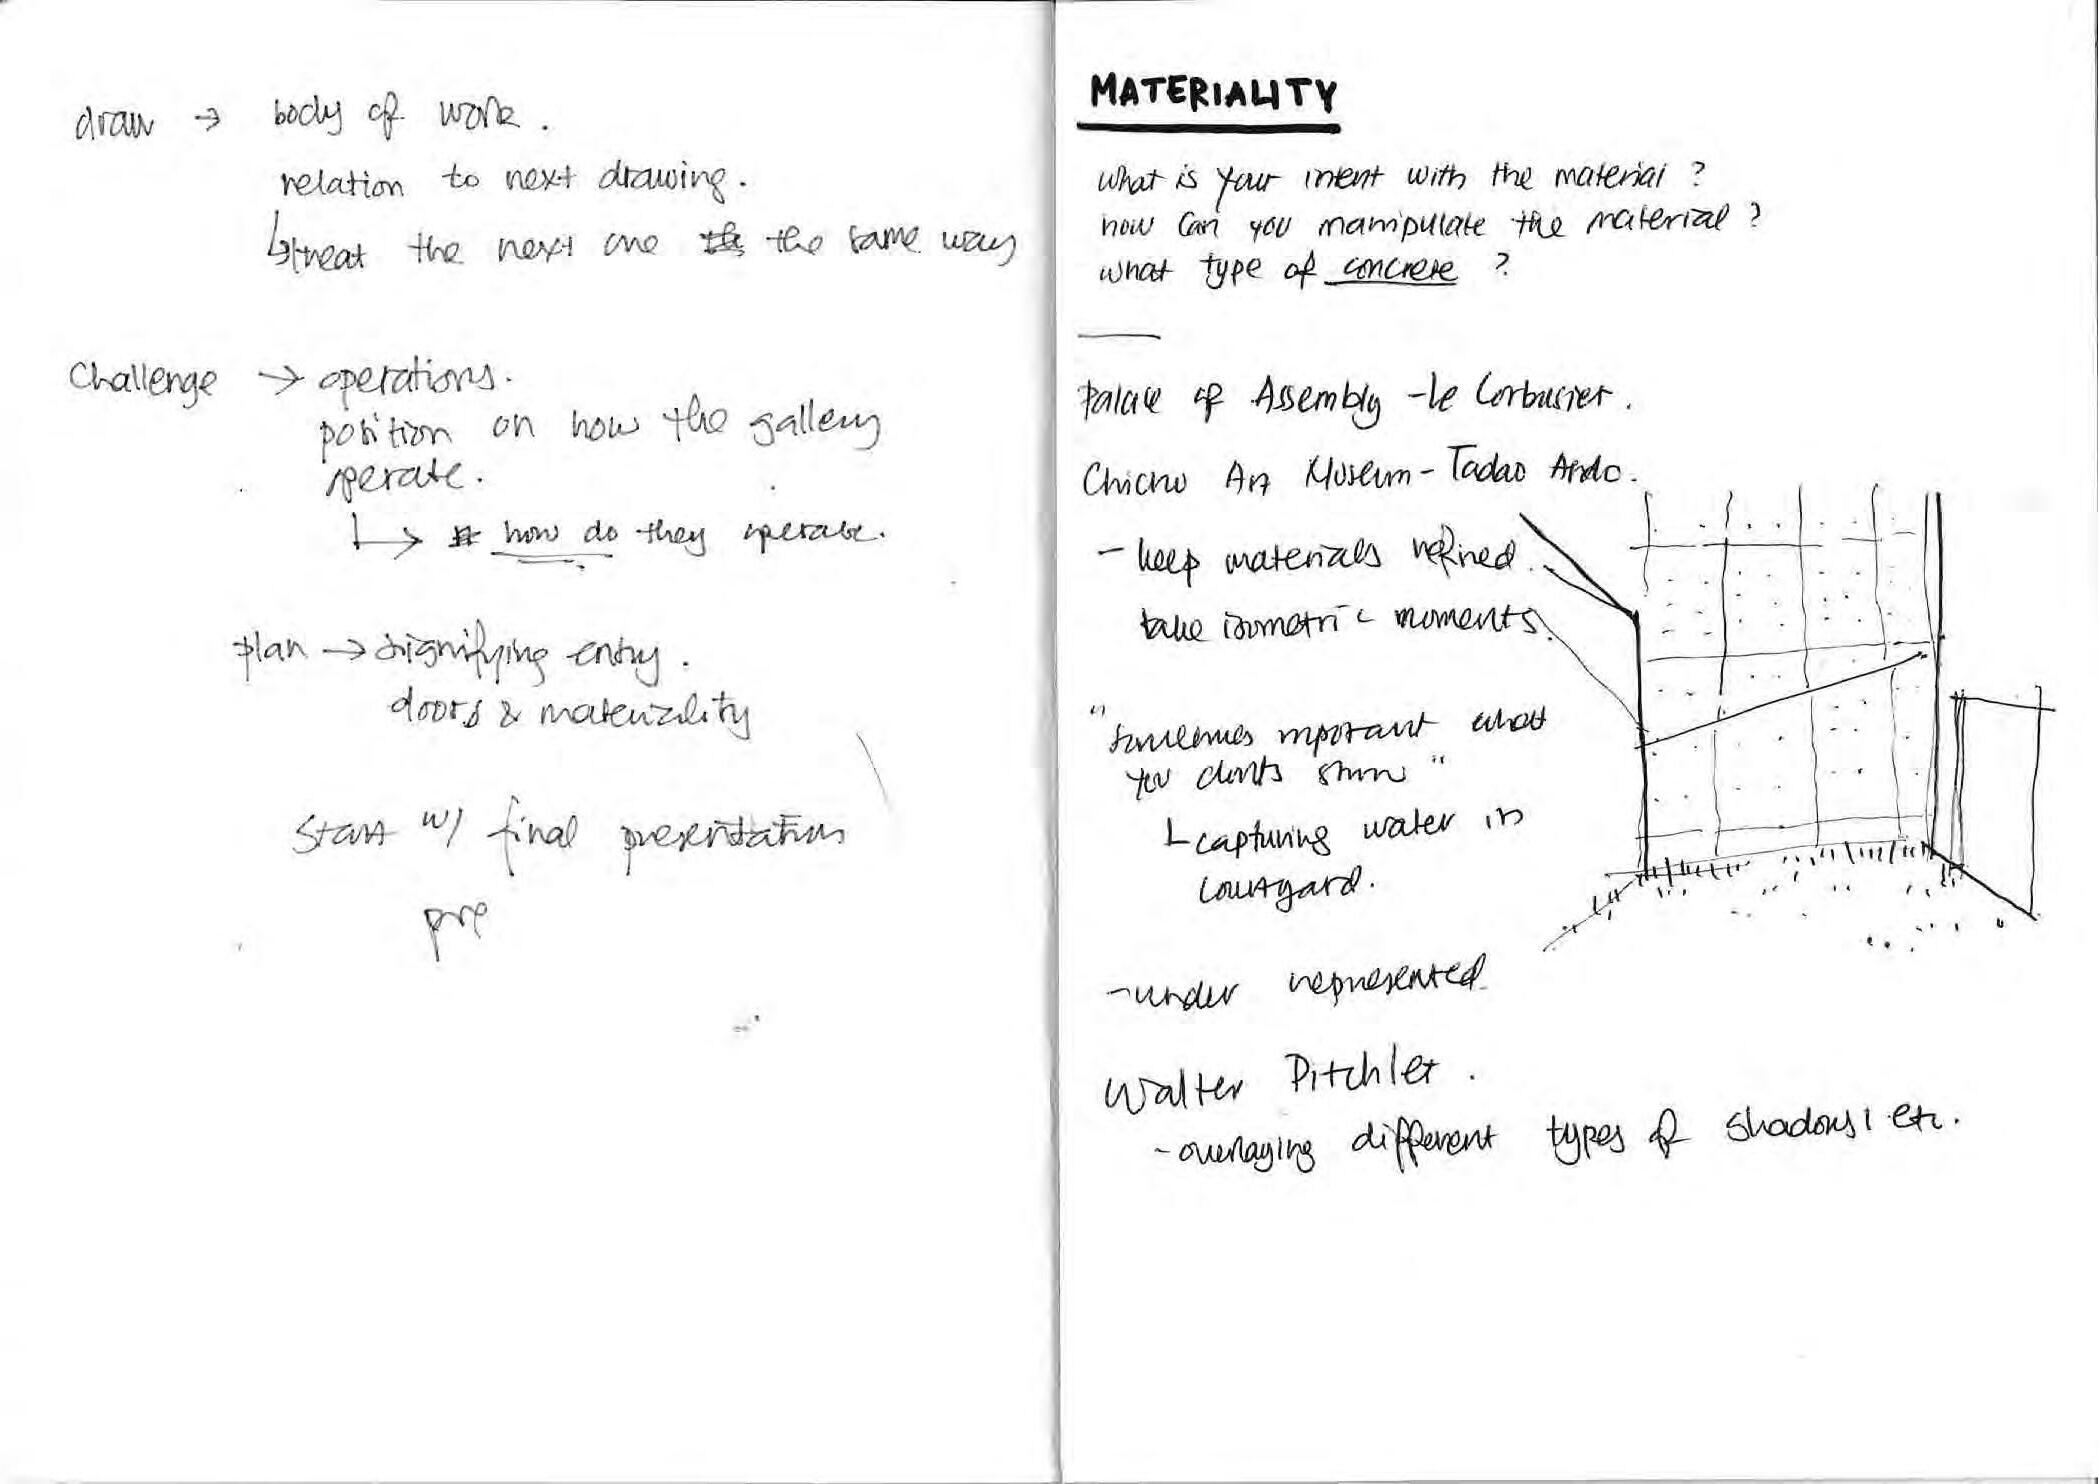 draw → body of work.
relation to next drawing.
↳ treat the next one the same way
Challenge → operations.
position on how the gallery
operate.
↳ how do they operate.
plan → signifying entry.
doors & materiality
Start w/ final presentation
pre
MATERIALITY
what is your intent with the material?
how can you manipulate the material?
what type of concrete?
Palace of Assembly - le Corbusier.
Chichu Art Museum - Tadao Ando.
- keep materials refined.
take isometric moments.
"sometimes important what
you don't show"
↳ capturing water in
courtyard.
- under represented
Walter Pitchler.
- overlaying different types of shadows, etc.